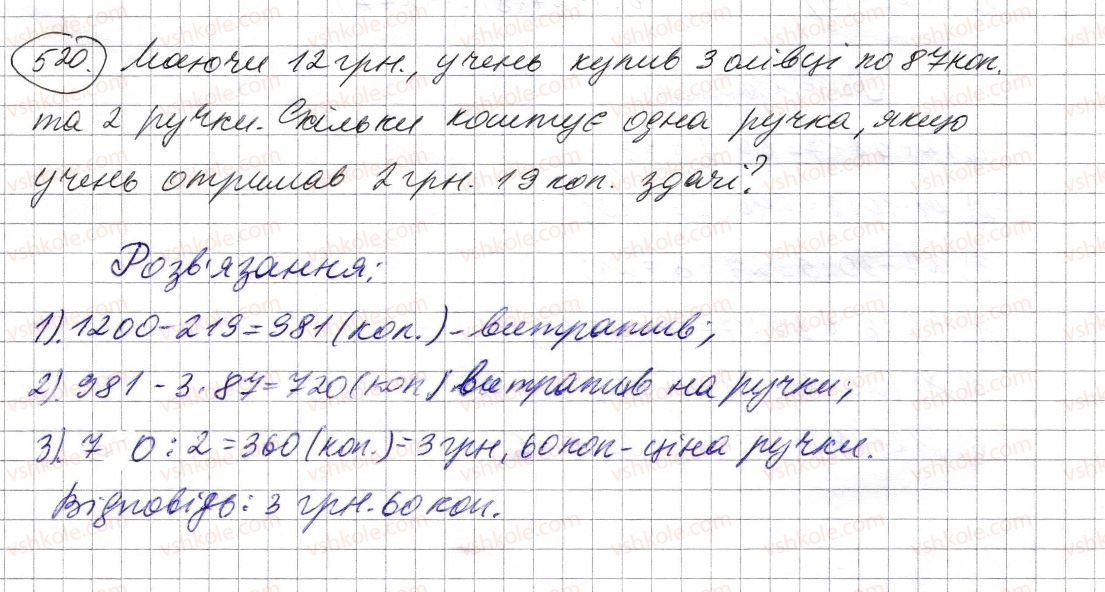 520. Маючи 12 грн., учень купив 3 олівці по 87 коп.
та 2 ручки. Скільки коштує одна ручка, якщо
учень отримав 2 грн. 19 коп. здачі?
Розв'язання:
1). 1200-219=981 (коп.) - витратив;
2). 981-3·87=720 (коп.) витратив на ручки;
3). 7 0:2=360 (коп.)=3 грн, 60 коп - ціна ручки.
Відповідь: 3 грн. 60 коп.